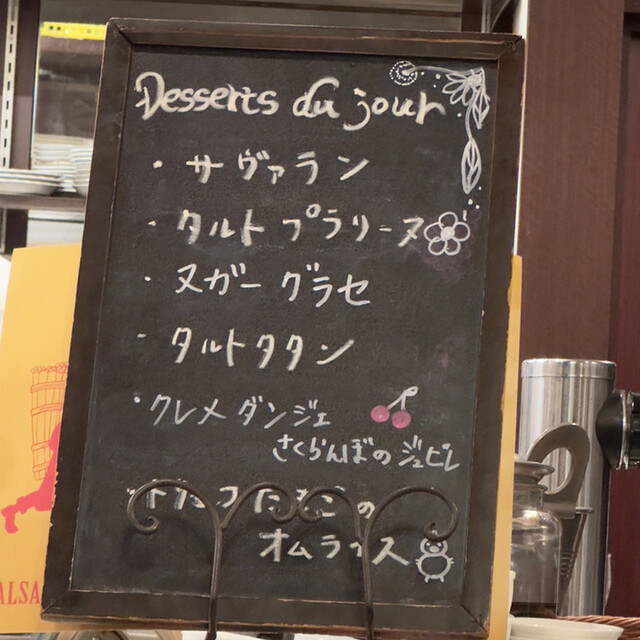 Desserts du jour
・サヴァラン
・タルトプラリーヌ
・ヌガーグラセ
・タルトタタン
・クレメダンジェ
さくらんぼのジュビレ
の
オムライス
ALSA